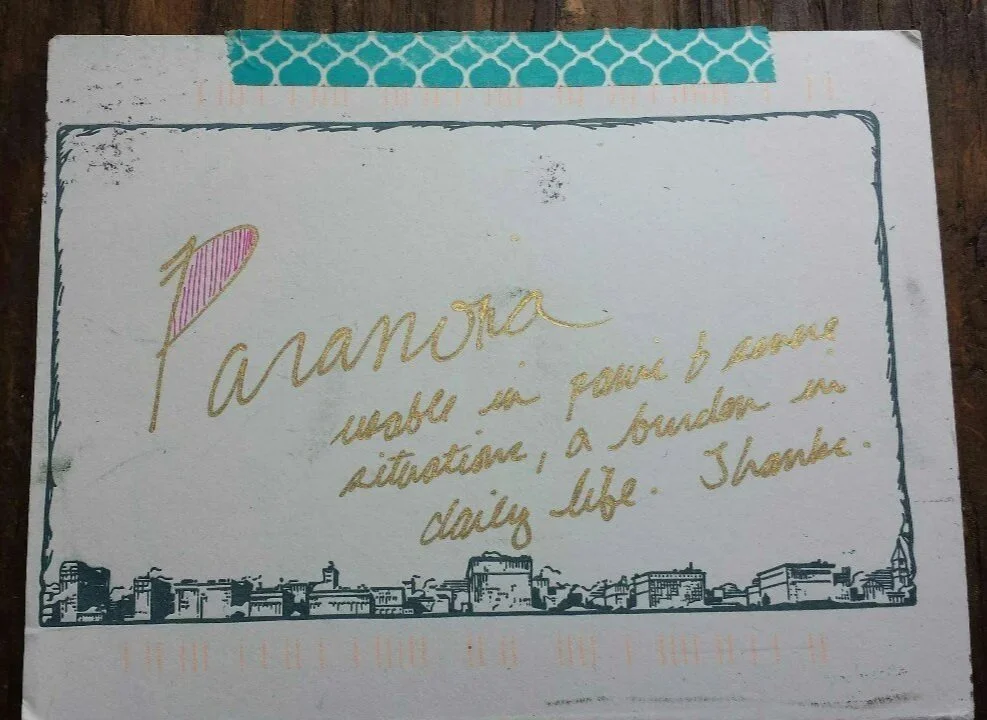 Paranoia
usable in panic & severe
situations, a burden in
daily life. Thanks.